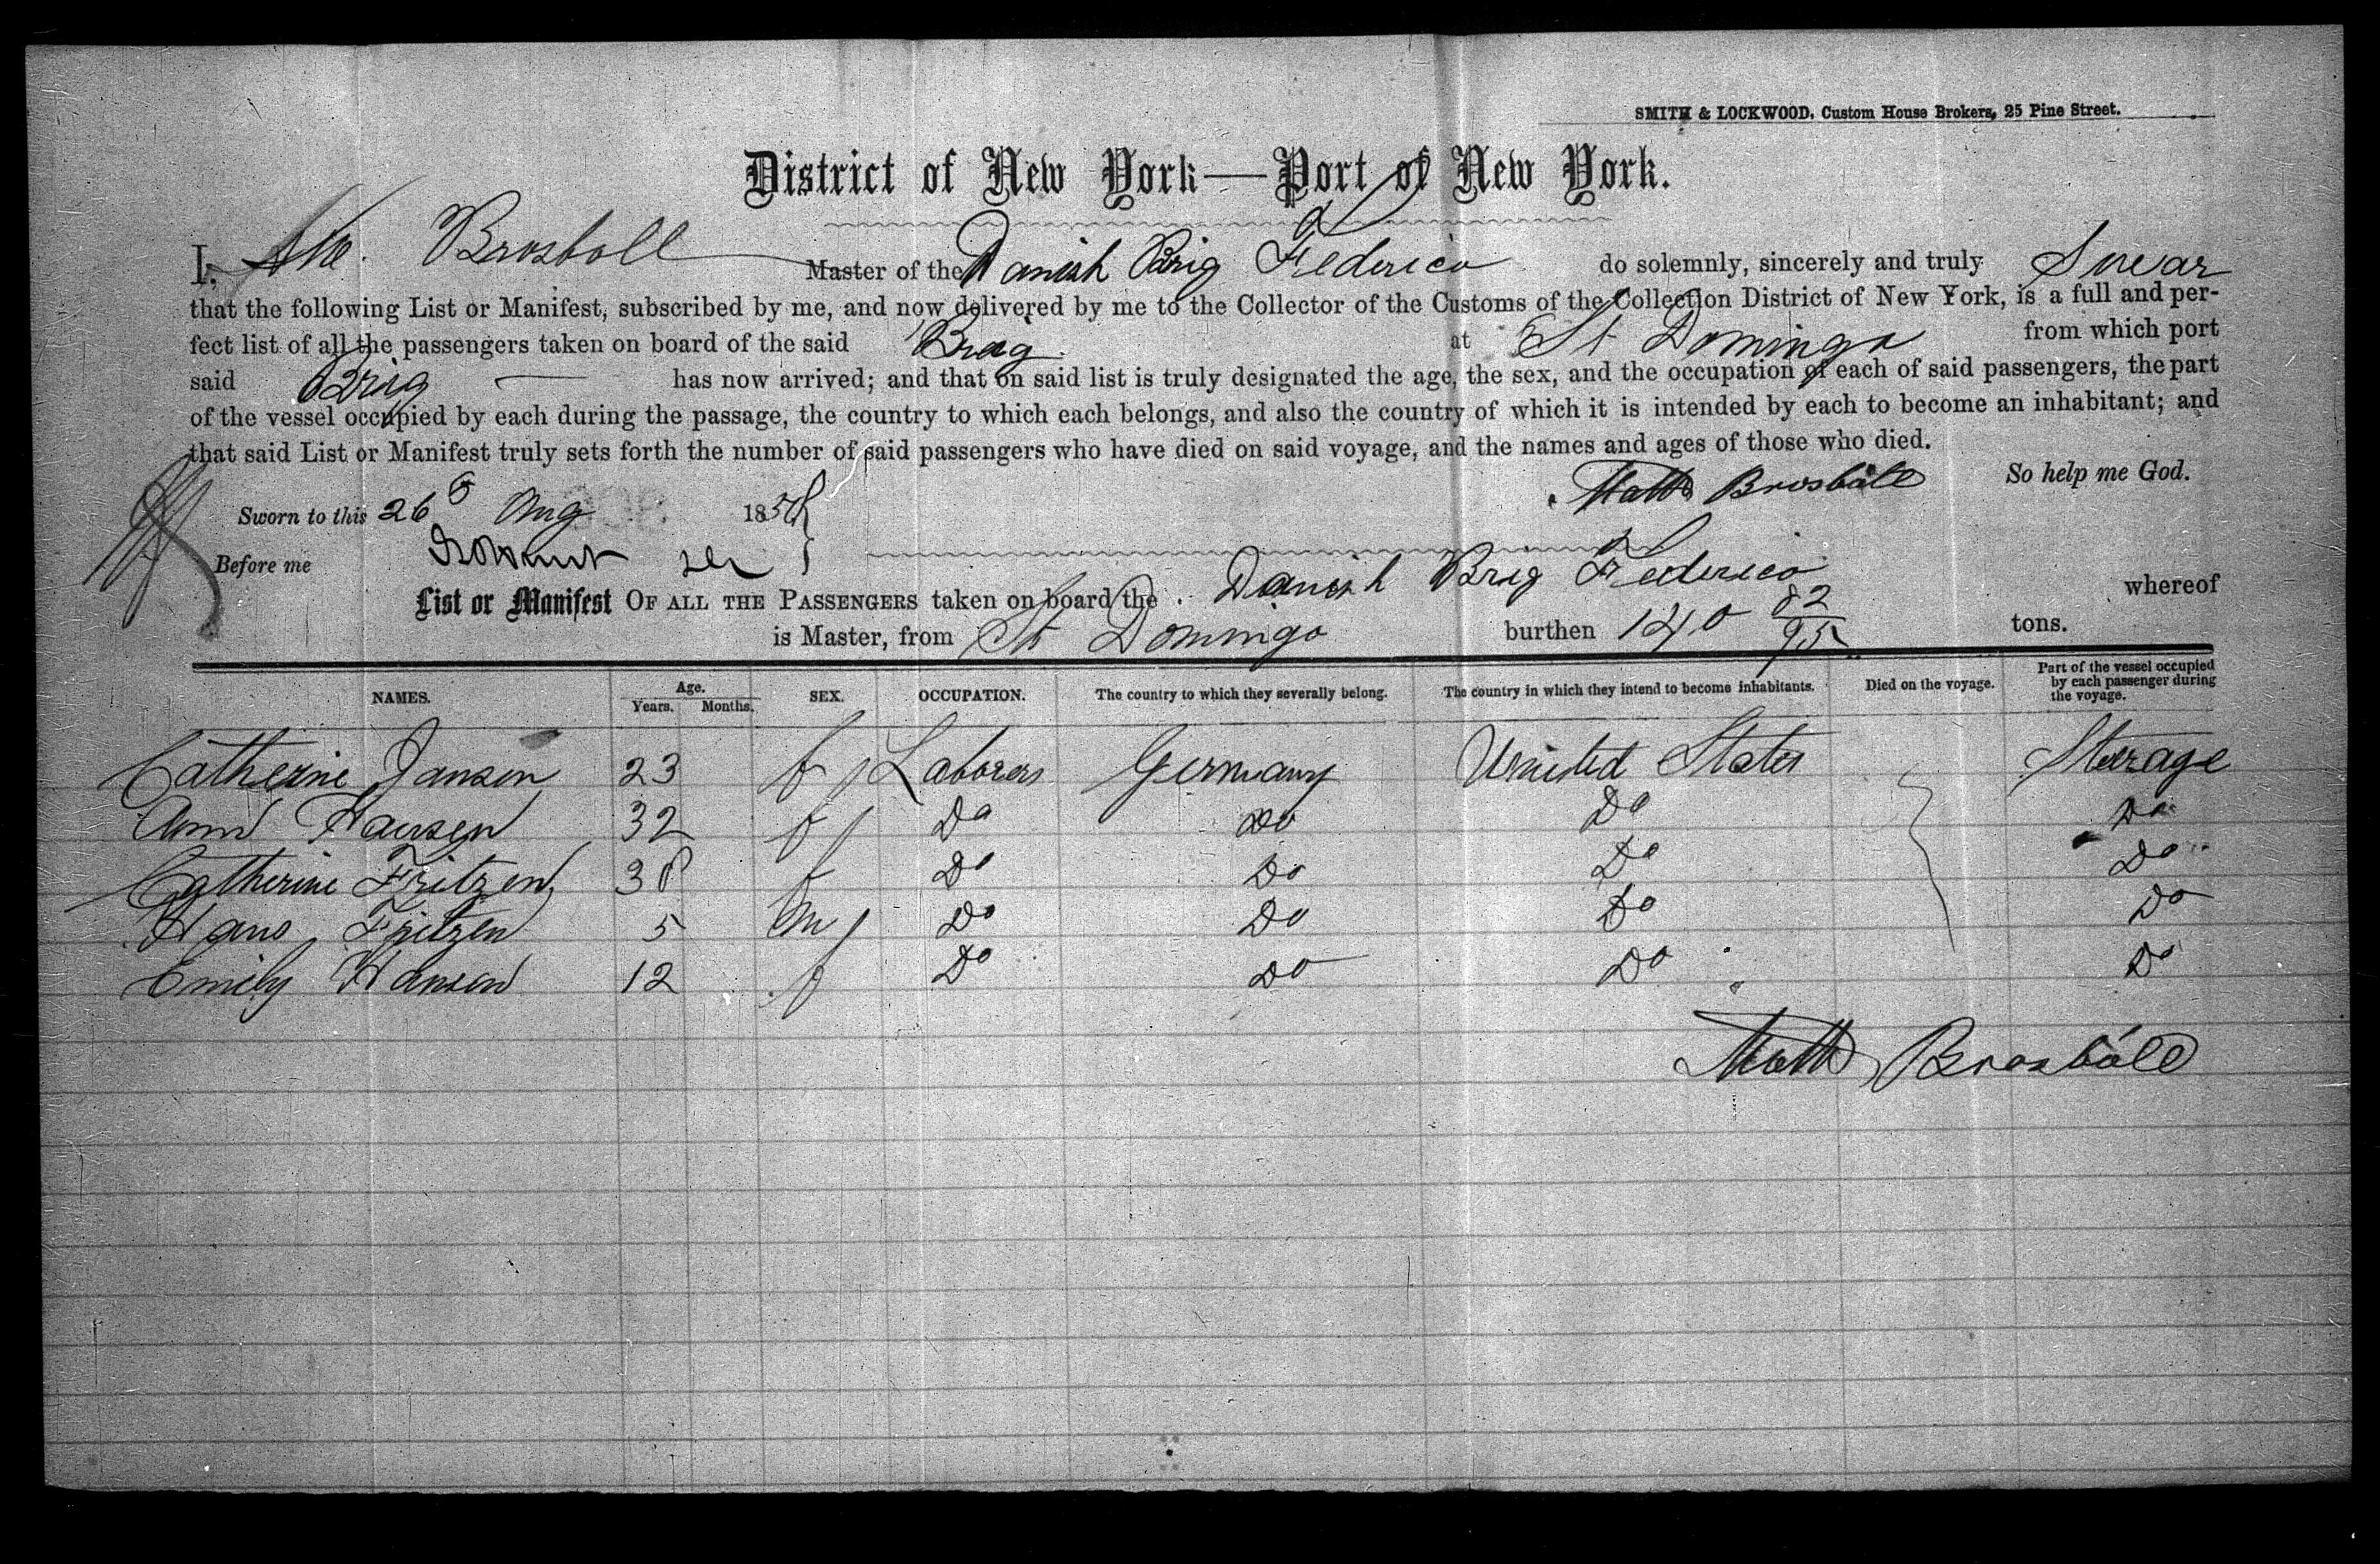 SMITH & LOCKWOOD, Custom House Brokers, 25 Pine Street.
District of New York—Port of New York.
I, Brosboll Master of the Danish Brig Federico do solemnly, sincerely and truly Swear
that the following List or Manifest, subscribed by me, and now delivered by me to the Collector of the Customs of the Collection District of New York, is a full and per-
fect list of all the passengers taken on board of the said Brig at St Domingo from which port
said Brig — has now arrived; and that on said list is truly designated the age, the sex, and the occupation of each of said passengers, the part
of the vessel occupied by each during the passage, the country to which each belongs, and also the country of which it is intended by each to become an inhabitant; and
that said List or Manifest truly sets forth the number of said passengers who have died on said voyage, and the names and ages of those who died.
So help me God.
Matts Brosböll
Sworn to this 26 Aug 1858
Before me
List or Manifest OF ALL THE PASSENGERS taken on board the Danish Brig Federico whereof
is Master, from St Domingo burthen 140 82/95 tons.
NAMES. Age. Years. Months. SEX. OCCUPATION. The country to which they severally belong. The country in which they intend to become inhabitants. Died on the voyage. Part of the vessel occupied by each passenger during the voyage.
Catherine Jansen 23 f Laborers Germany United States Steerage
Ann Hansen 32 f Do Do Do Do
Catherine Fritzen 38 f Do Do Do Do
Hans Fritzen 5 m Do Do Do Do
Emily Hansen 12 f Do Do Do Do
Matts Brosböll